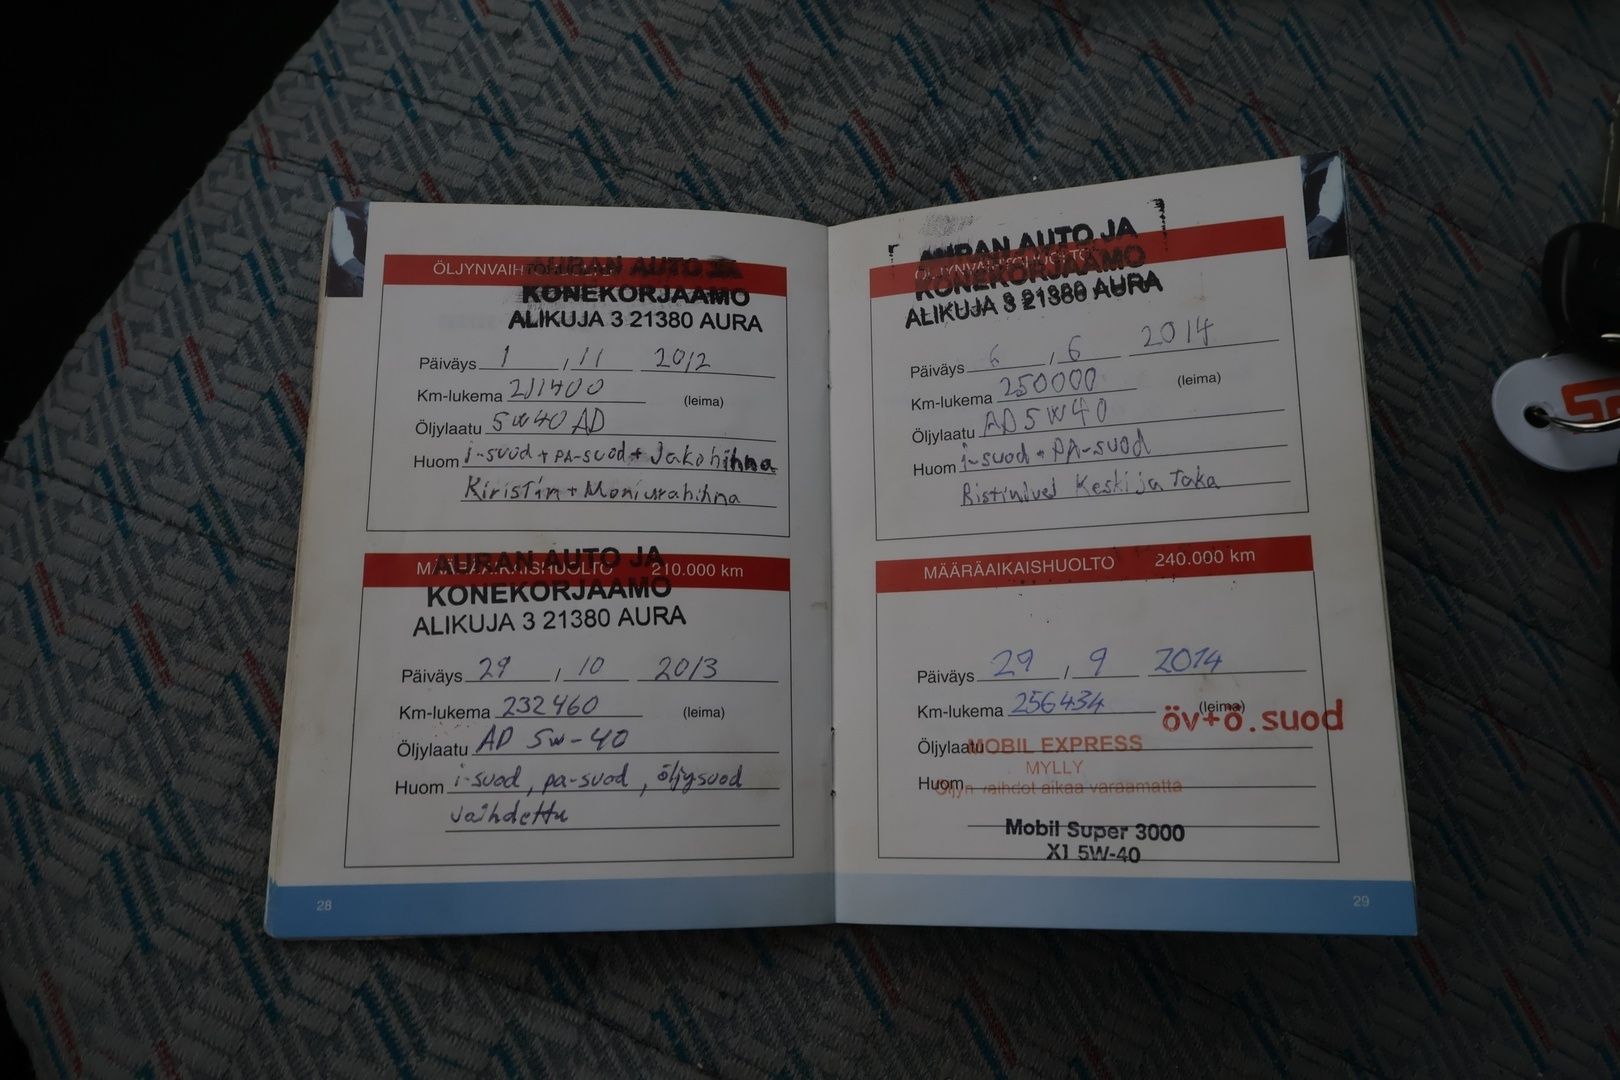 ÖLJYNVAIHTOHUOLTO
AURAN AUTO JA
KONEKORJAAMO
ALIKUJA 3 21380 AURA
Päiväys 1 , 11 2012
Km-lukema 211400 (leima)
Öljylaatu 5W40 AD
Huom i-suod + PA-suod + Jakohihna
Kiristin + Moniurahihna
MÄÄRÄAIKAISHUOLTO 210.000 km
AURAN AUTO JA
KONEKORJAAMO
ALIKUJA 3 21380 AURA
Päiväys 29 / 10 2013
Km-lukema 232460 (leima)
Öljylaatu AD 5w-40
Huom i-suod, pa-suod, öljysuod
vaihdettu
28
AURAN AUTO JA
ÖLJYNVAIHTOHUOLTO
KONEKORJAAMO
ALIKUJA 3 21380 AURA
Päiväys 6 , 6 2014
Km-lukema 250000 (leima)
Öljylaatu AD 5W40
Huom i-suod + PA-suod
Ristinivel Keski ja Taka
MÄÄRÄAIKAISHUOLTO 240.000 km
Päiväys 29 , 9 2014
Km-lukema 256434 (leima)
öv+ö.suod
Öljylaatu MOBIL EXPRESS
MYLLY
Huom Öljyn vaihdot aikaa varaamatta
Mobil Super 3000
X1 5W-40
29